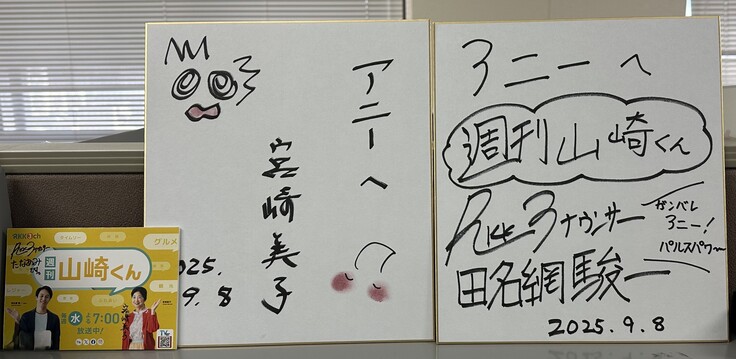 アニーへ
宮崎美子
2025.
9.8
アニーへ
週刊山崎くん
RKKアナウンサー
ガンバレ
アニー!
パルスパワー
田名網駿一
2025.9.8
RKK 3ch
グルメ
週刊
山崎くん
毎週水よる7:00
放送中!